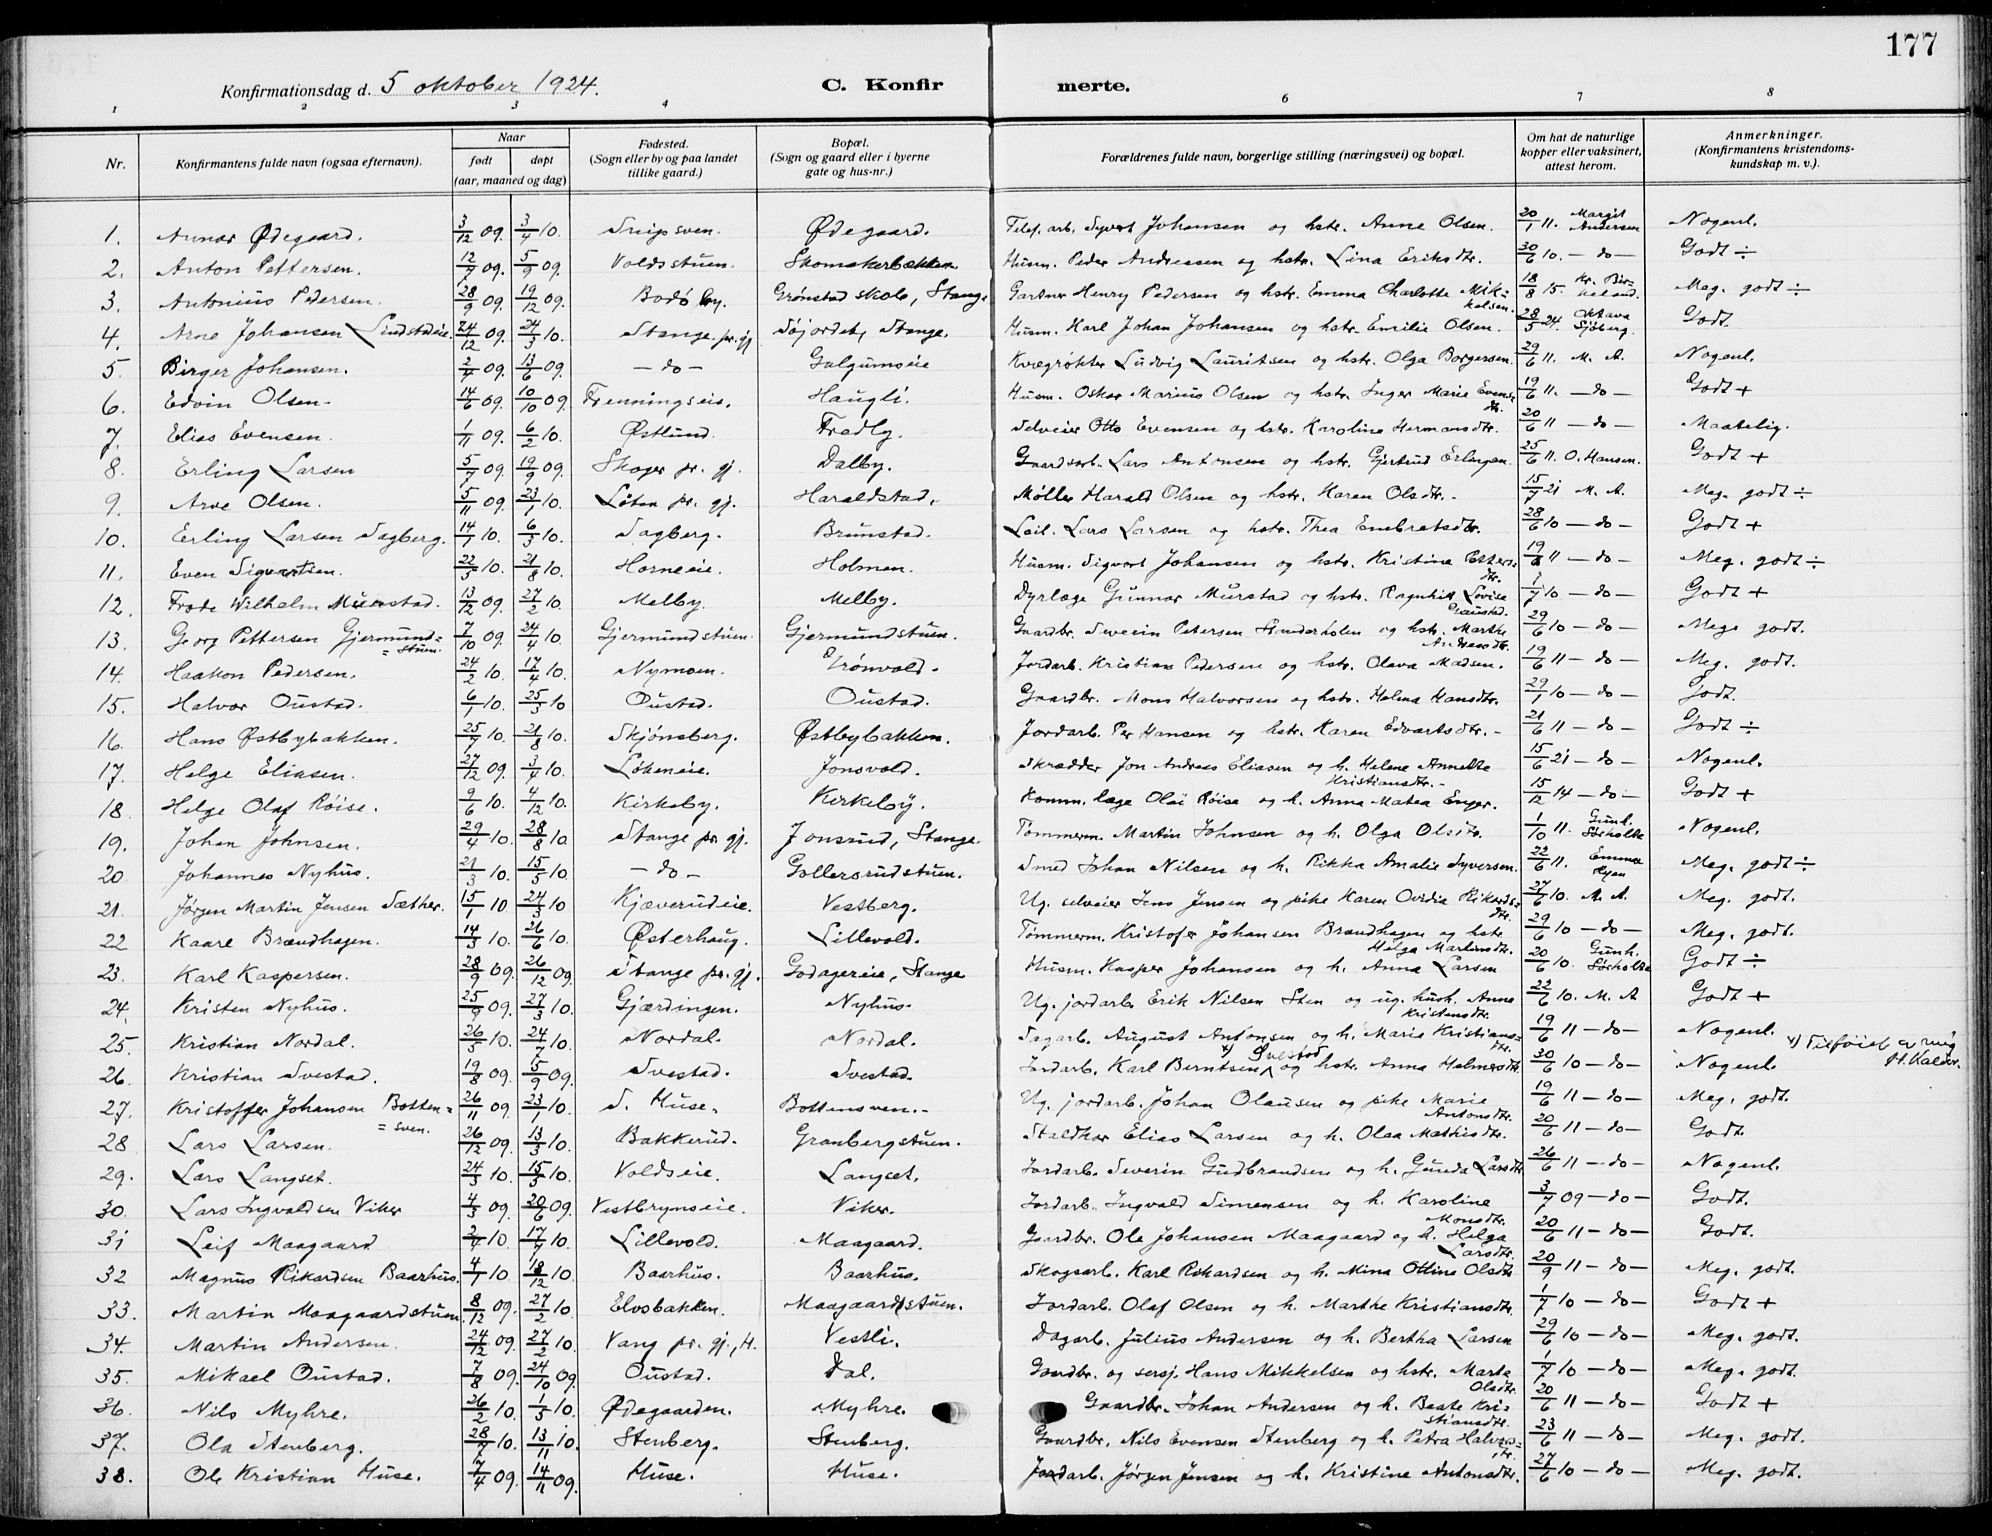 177
Konfirmationsdag d. 5 oktober 1924.
C. Konfirmerte.
1 2 3 4 6 7 8
Nr. Konfirmantens fulde navn (ogsaa efternavn). Naar født døpt (aar, maaned og dag) Fødested. (Sogn eller by og paa landet tillike gaard.) Bopæl. (Sogn og gaard eller i byerne gate og hus-nr.) Forældrenes fulde navn, borgerlige stilling (næringsvei) og bopæl. Om hat de naturlige kopper eller vaksinert, attest herom. Anmerkninger. (Konfirmantens kristendomskundskap m. v.).
1. Annar Ødegaard. 3/12 09. 3/4 10. Snipsven. Ødegaard. Telef. arb. Syvert Johansen og hstr. Anne Olsen. 20/1 11. Margit Andersen Nogenl.
2. Anton Pettersen. 12/7 09. 5/9 09. Voldsstuen. Skomakerbakken. Husm. Peder Andreassen og hstr. Lina Eriksdtr. 30/6 10. - do - Godt ÷
3. Antonius Pedersen. 28/9 09. 19/12 09. Bodø by. Grønstad skole, Stange Gartner Henry Pedersen og hstr. Emma Charlotte Mikkelsen. 18/8 15. Kr. Birkeland. Meg. godt ÷
4. Arne Johansen Lindstadeie. 24/12 09. 24/3 10. Stange pr. gj. Søjordet, Stange. Husm. Karl Johan Johansen og hstr. Emilie Olsen. 28/5 24. Oktava Sjøberg. Godt.
5. Birger Johansen. 2/4 09. 13/6 09. - do - Galgumseie Kvægrøkter Ludvig Lauritsen og hstr. Olga Borgersen. 29/6 11. M. A. Nogenl.
6. Edvin Olsen. 14/6 09. 10/10 09. Frenningseie. Haugli. Husm. Oskar Marius Olsen og hstr. Inger Marie Evensdtr. 19/6 11. - do - Godt +
7. Elias Evensen. 1/11 09. 6/2 10. Østlund. Fredly. Selveier Otto Evensen og hstr. Karoline Hermansdtr. 20/6 11 - do - Maatelig.
8. Erling Larsen 5/7 09. 19/9 09. Skoger pr. gj. Dalby. Gaardsarb. Lars Antonsen og hstr. Gjertrud Erlingsen. 25/6 11. O. Hansen. Godt +
9. Arve Olsen. 5/11 09. 23/1 10. Løten pr. gj. Haraldstad. Møller Harald Olsen og hstr. Karen Olsdtr. 15/7 21 M. A. Meg. godt ÷
10. Erling Larsen Sagberg. 14/1 10. 6/3 10. Sagberg. Brunstad. Leil. Lars Larsen og hstr. Thea Embretsdtr. 28/6 10 - do - Godt +
11. Even Sigvartsen. 22/5 10. 21/8 10. Horneeie. Holmen. Husm. Sigvart Johansen og hstr. Kristine Pettersdtr. 19/6 11 - do - Meg. godt ÷
12. Frode Wilhelm Murstad. 13/12 09. 27/2 10. Melby. Melby. Dyrlæge Gunnar Murstad og hstr. Ragnhild Lovise Graustad. 1/7 10 - do - Godt +
13. Georg Pettersen Gjermundstuen. 7/10 09. 24/4 10. Gjermundstuen. Gjermundstuen. Gaardbr. Severin Petersen Sønderholen og hstr. Marthe Andreasdtr. 29/6 10 - do - Meg. godt.
14. Haakon Pedersen. 24/2 10. 17/4 10. Nymoen. Grønvold. Jordarb. Kristian Pedersen og hstr. Olava Madsen. 19/6 11 - do - Meg. godt.
15. Halvor Oustad. 6/1 10. 25/3 10 Oustad. Oustad. Gaardbr. Mons Halvorsen og hstr. Helma Hansdtr. 29/1 10 - do - Godt.
16. Hans Østbybakken. 25/7 10. 21/8 10. Skjønsberg. Østbybakken. Jordarb. Per Hansen og hstr. Karen Edvartsdtr. 21/6 11 - do - Godt ÷
17. Helge Eliasen. 27/12 09. 3/4 10. Løkeneie. Jonsvold. Skrædder Jon Andreas Eliasen og h. Helene Annette Kristiansdtr. 15/6 21 - do - Nogenl.
18. Helge Olaf Røise. 9/6 10. 4/12 10. Kirkeby. Kirkeby. Komm. læge Olai Røise og h. Anna Matea Enger. 15/12 14 - do - Godt +
19. Johan Johnsen. 29/4 10. 28/8 10. Stange pr. gj. Jonsrud, Stange. Tømmerm. Martin Johnsen og h. Olga Olsdtr. 1/10 11. Gunh. Sørholte Nogenl.
20. Johannes Nyhus. 21/3 10. 15/5 10. - do - Gollersrudstuen. Smed Johan Nilsen og h. Rikka Amalie Syversen. 22/6 11. Emma Hyen Meg. godt ÷
21. Jørgen Martin Jensen Sæther. 15/1 10. 24/3 10 Kjæverudeie. Vestberg. Ug. selveier Jens Jensen og pike Karen Ovidia Rikardsdtr. 27/6 10. M. A. Meg. godt.
22 Kaare Brændhagen. 14/3 10. 26/6 10. Østerhaug. Lillevold. Tømmerm. Kristofer Johansen Brændhagen og hstr. Helga Martinsdtr. 29/6 10 - do - Meg. godt.
23. Karl Kaspersen. 28/9 09. 26/12 09. Stange pr. gj. Godagereie, Stange Husm. Kasper Johansen og h. Anna Larsen 20/6 10. Gunh. Sørholte Godt ÷
24. Kristen Nyhus. 25/9 09. 27/3 10. Gjærdingen. Nyhus. Ug. jordarb. Erik Nilsen Sten og ug. hush. Anne Kristensdtr. 22/6 10. M. A Godt +
25. Kristian Nordal. 26/5 10. 24/7 10. Nordal. Nordal. Dagarb. August Antonsen og h. Marie Kristiansdtr. 19/6 11 - do - Nogenl.
26. Kristian Svestad. 19/8 09. 5/9 09. Svestad. Svestad. Jordarb. Karl Berntsen x) Svestad og hstr. Anna Helmersdtr. 30/6 10 - do - Nogenl. x) Tilføiet av mig H. Kalder.
27. Kristoffer Johansen Bottensven. 26/11 09. 23/1 10. S. Huse. Bottensven. Ug. jordarb. Johan Olausen og pike Marie Antonsdtr. 19/6 11 - do - Meg. godt.
28 Lars Larsen. 26/12 09. 13/3 10. Bakkerud. Granbergstuen. Staldkar Elias Larsen og h. Olaa Mathisdtr. 20/6 11 - do - Godt
29. Lars Langset. 24/3 10. 15/5 10. Voldseie. Langset. Jordarb. Severin Gudbrandsen og h. Gunda Larsdtr. 26/6 11 - do - Nogenl.
30. Lars Ingvaldsen Viker 4/3 09. 20/6 09. Vestbrynseie. Viker. Jordarb. Ingvald Simensen og h. Karoline Monsdtr. 3/7 09 - do - Godt.
31 Leif Maagaard 2/4 10. 17/7 10. Lillevold. Maagaard. Gaardbr. Ole Johansen Maagaard og h. Helga Larsdtr. 20/6 11 - do - Godt.
32 Magnus Rikardsen Baarhus. 4/7 10. 18/12 10. Baarhus. Baarhus. Skogsarb. Karl Rikardsen og h. Mina Ottine Olsdtr. 20/9 11 - do - Meg. godt.
33. Martin Maagaardstuen. 8/12 09. 27/2 10. Elvsbakken. Maagaardstuen. Jordarb. Olaf Olsen og h. Marthe Kristiansdtr. 1/7 10 - do - Godt +
34. Martin Andersen. 24/12 09. 27/2 10. Vang pr. gj., H. Vestli. Dagarb. Julius Andersen og h. Bertha Larsen 29/6 10 - do - Meg. godt.
35. Mikael Oustad. 7/8 09. 24/10 09. Oustad. Dal. Gaardbr. og sersj. Hans Mikkelsen og hstr. Marte Olsdtr. 1/7 10 - do - Meg. godt.
36. Nils Myhre. 26/2 10. 1/5 10. Ødegaarden. Myhre. Gaardbr. Johan Andersen og h. Beate Kristiansdtr. 20/6 11 - do - Godt +
37. Ola Stenberg. 28/7 10. 13/11 10. Stenberg. Stenberg. Gaardbr. Nils Evensen Stenberg og h. Petra Halvorsdtr. 23/6 11 - do - Meg. godt.
38. Ole Kristian Huse. 7/4 09. 14/11 09. Huse. Huse. Jordarb. Jørgen Jensen og h. Kristine Antonsdtr. 27/6 10 - do - Meg. godt.